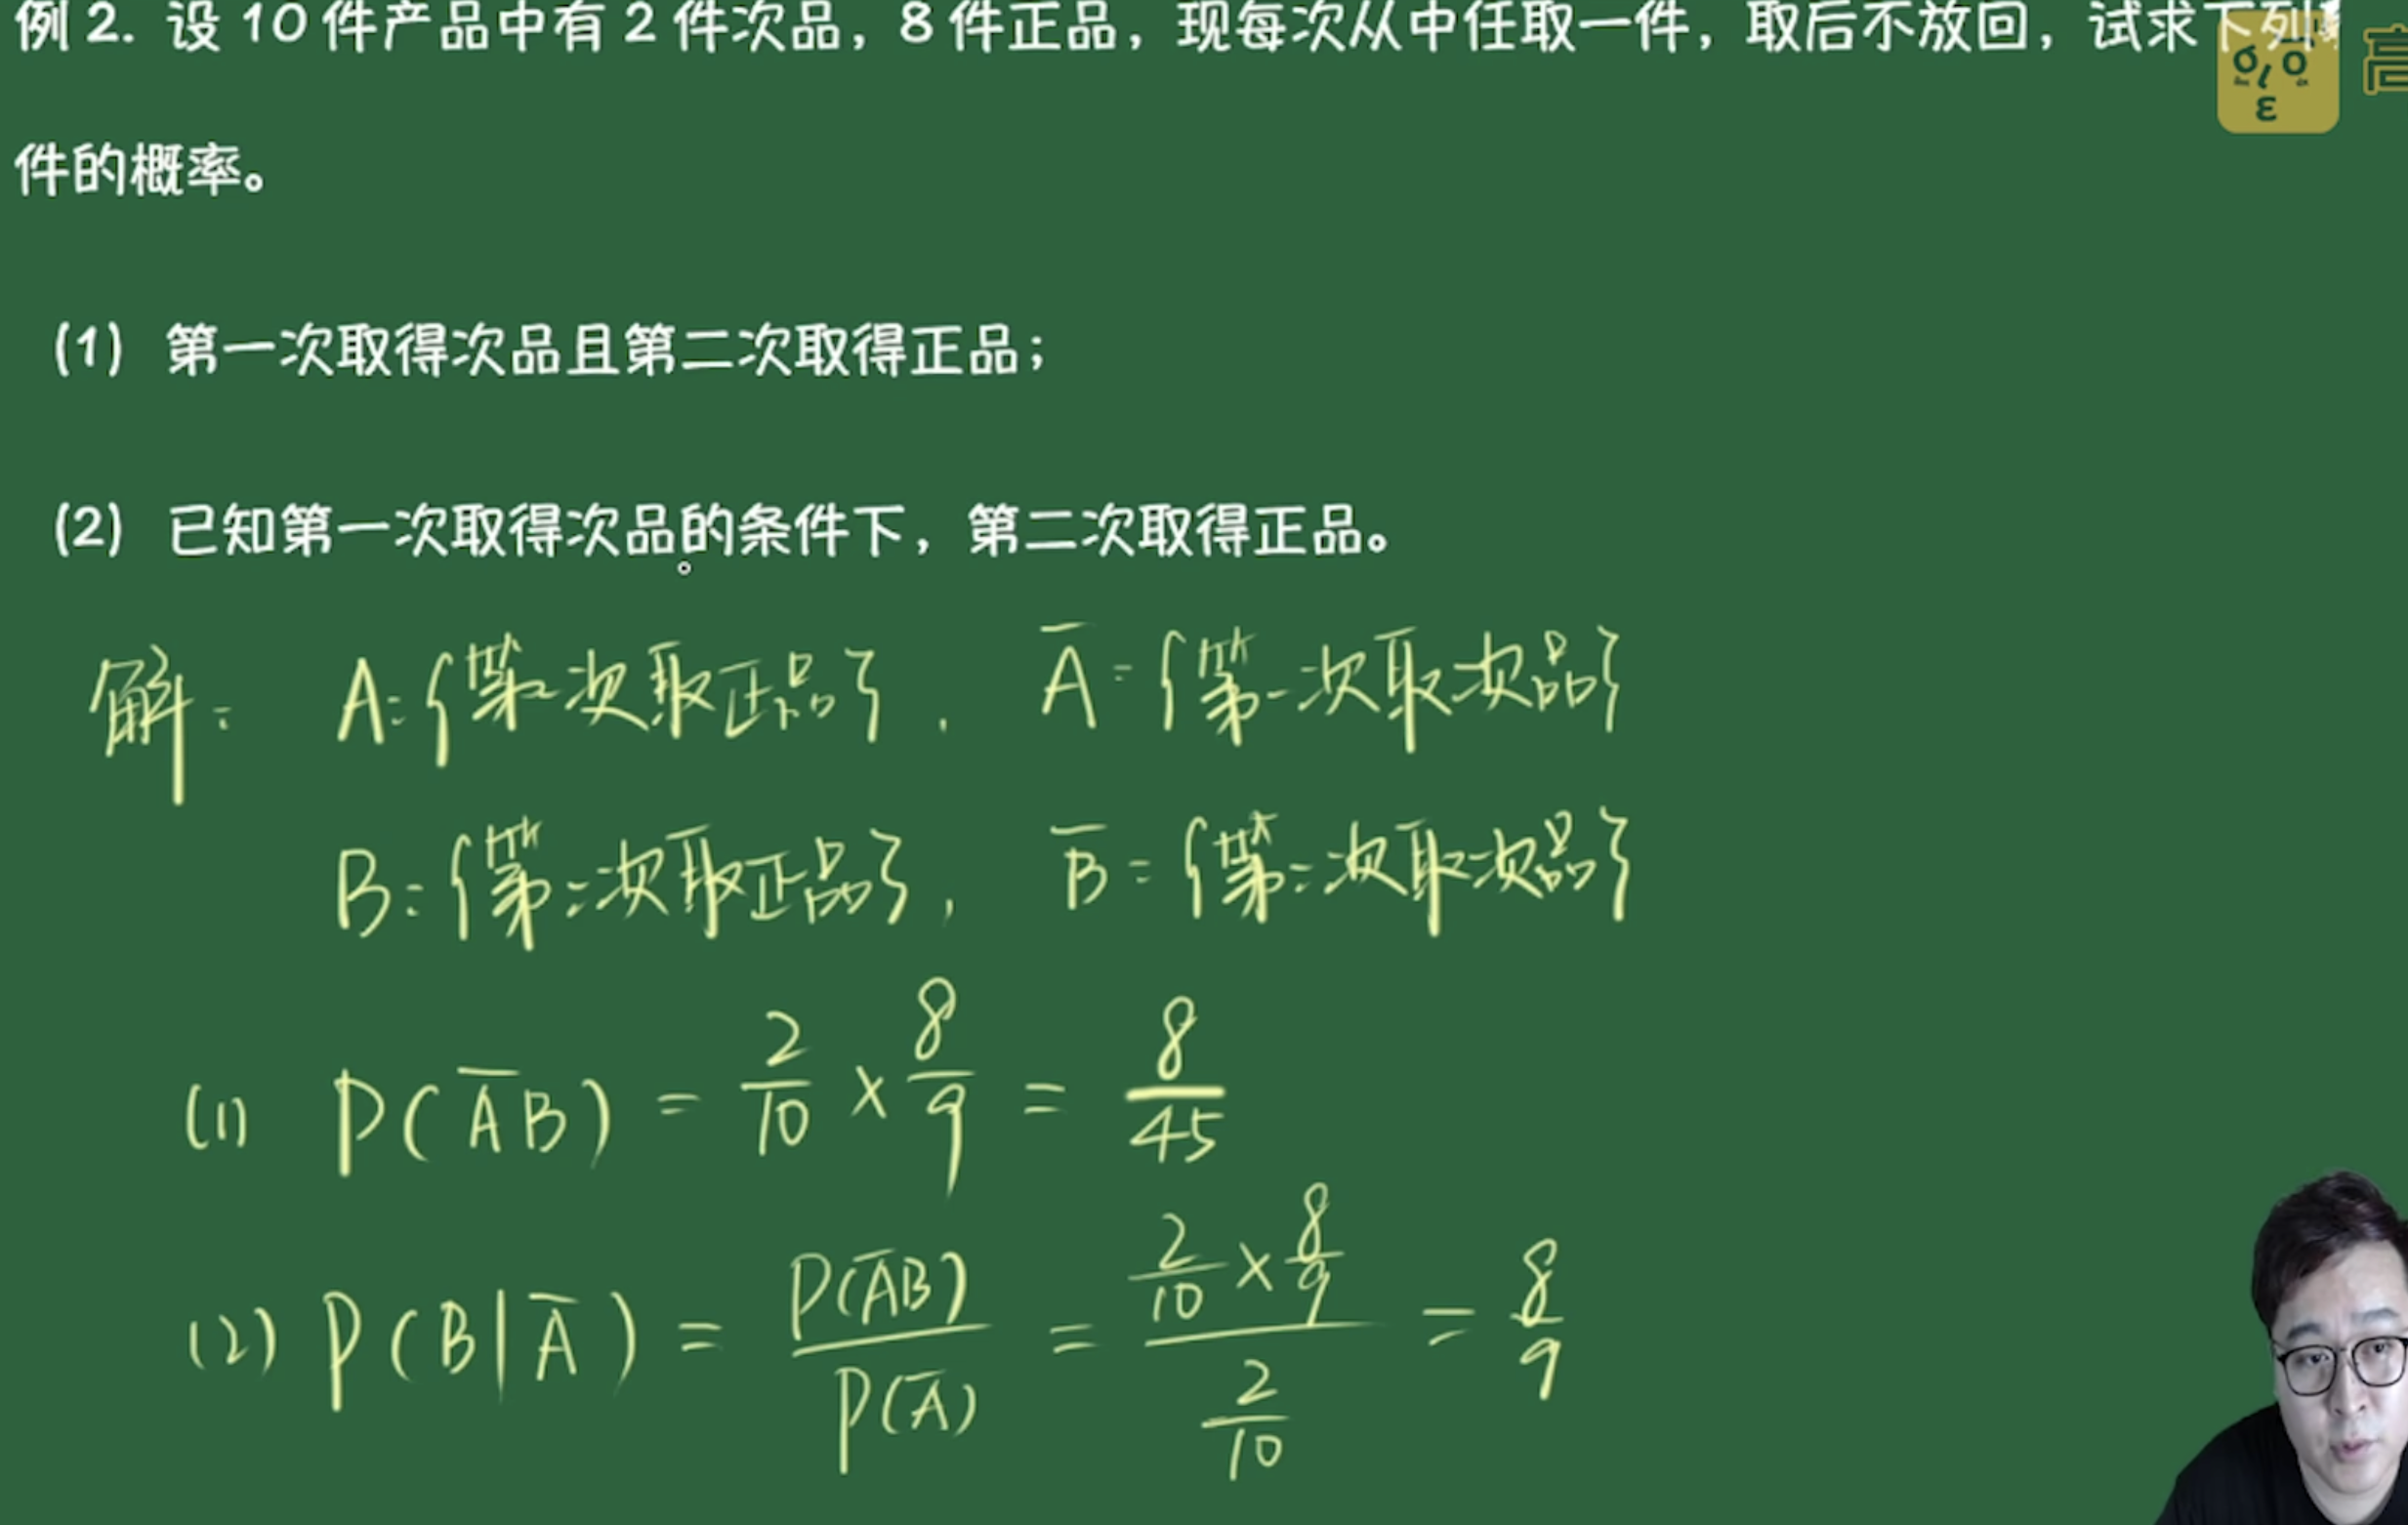 例 2. 设 10 件产品中有 2 件次品，8 件正品，现每次从中任取一件，取后不放回，试求下列
件的概率。
(1) 第一次取得次品且第二次取得正品；
(2) 已知第一次取得次品的条件下，第二次取得正品。
解: A={第一次取正品}, Ā={第一次取次品}
B={第二次取正品}, B̄={第二次取次品}
(1) P(ĀB) = 2/10 × 8/9 = 8/45
(2) P(B|Ā) = P(ĀB)/P(Ā) = (2/10 × 8/9)/(2/10) = 8/9